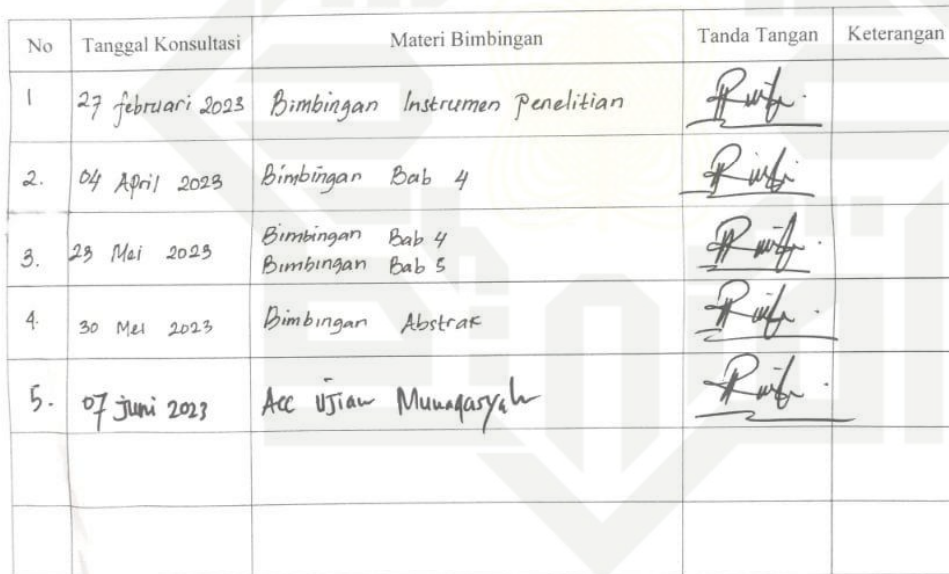 No Tanggal Konsultasi Materi Bimbingan Tanda Tangan Keterangan
1 27 februari 2023 Bimbingan Instrumen Penelitian
2. 04 April 2023 Bimbingan Bab 4
Bimbingan Bab 4
3. 23 Mei 2023
Bimbingan Bab 5
4. 30 Mei 2023 Bimbingan Abstrak
5. 07 Juni 2023 Acc Ujian Munaqasyah